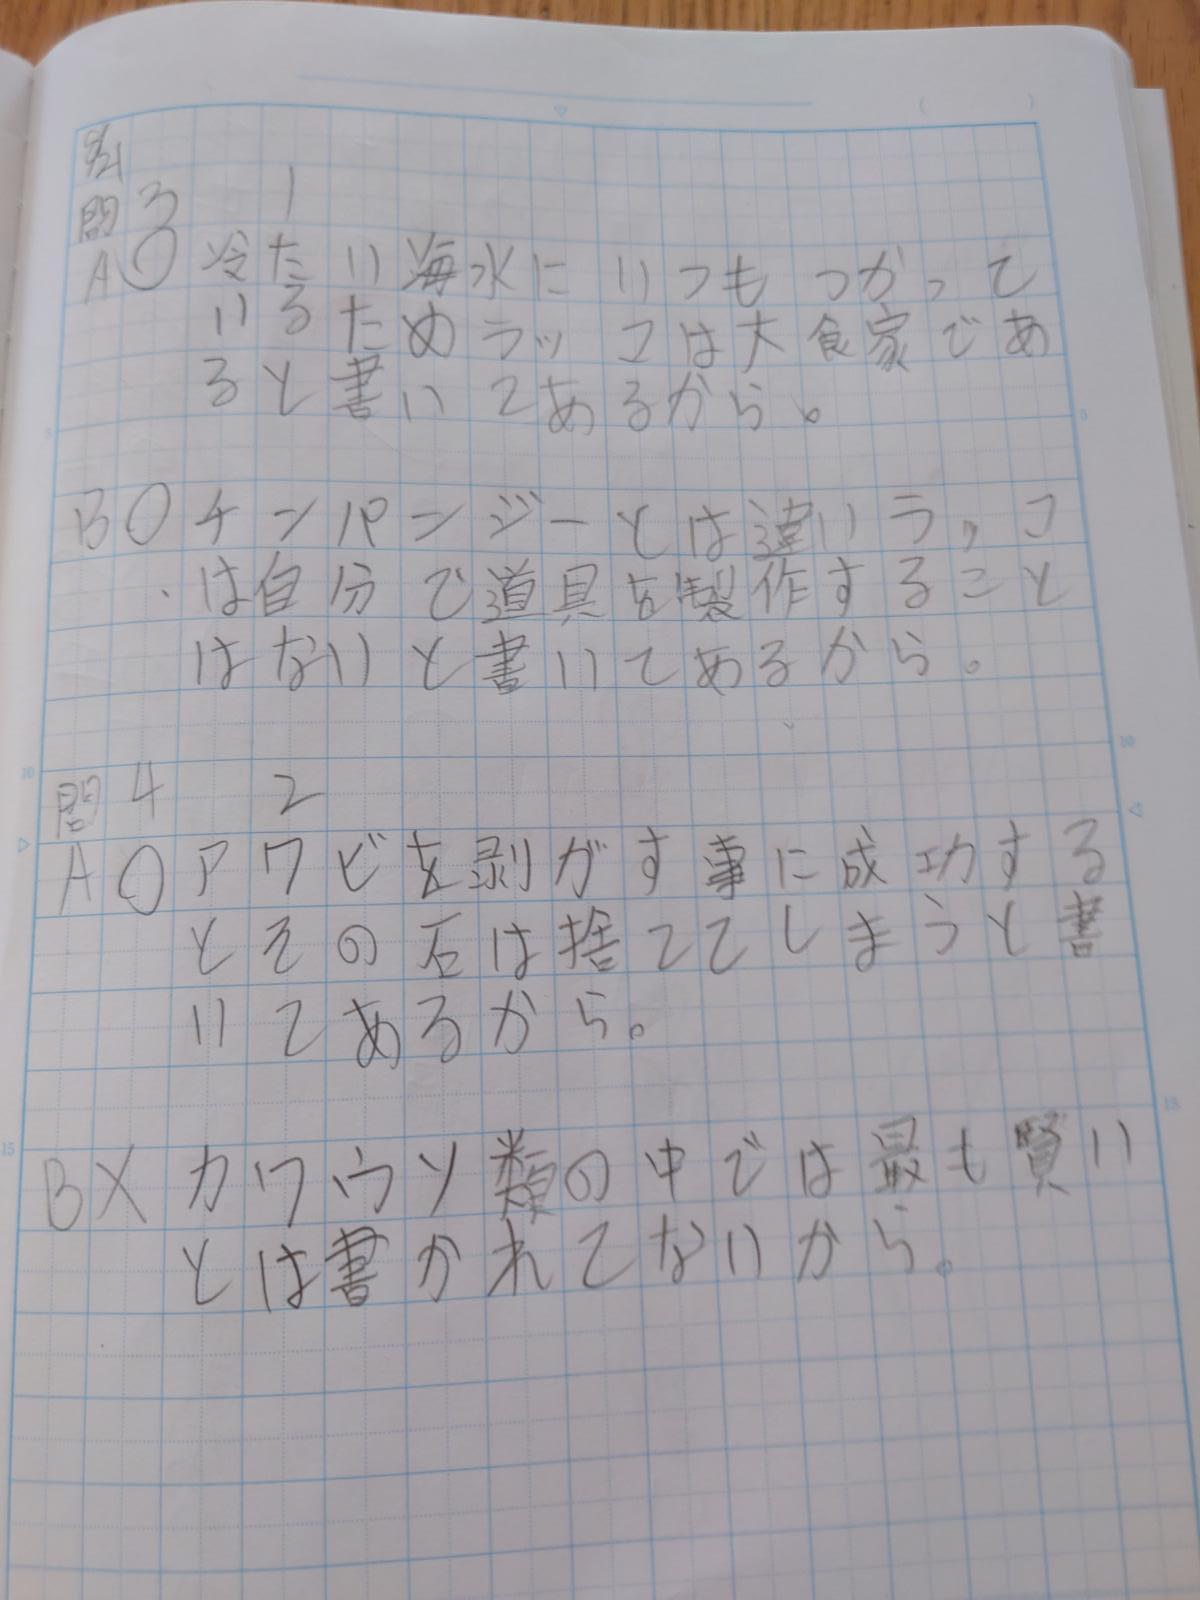 問3 1
A○冷たい海水にいつもつかって
いるためラッコは大食家であ
ると書いてあるから。
B○チンパンジーとは違いラッコ
は自分で道具を製作すること
はないと書いてあるから。
問4 2
A○アワビを剥がす事に成功する
とその石は捨ててしまうと書
いてあるから。
B×カワウソ類の中では最も賢い
とは書かれてないから。